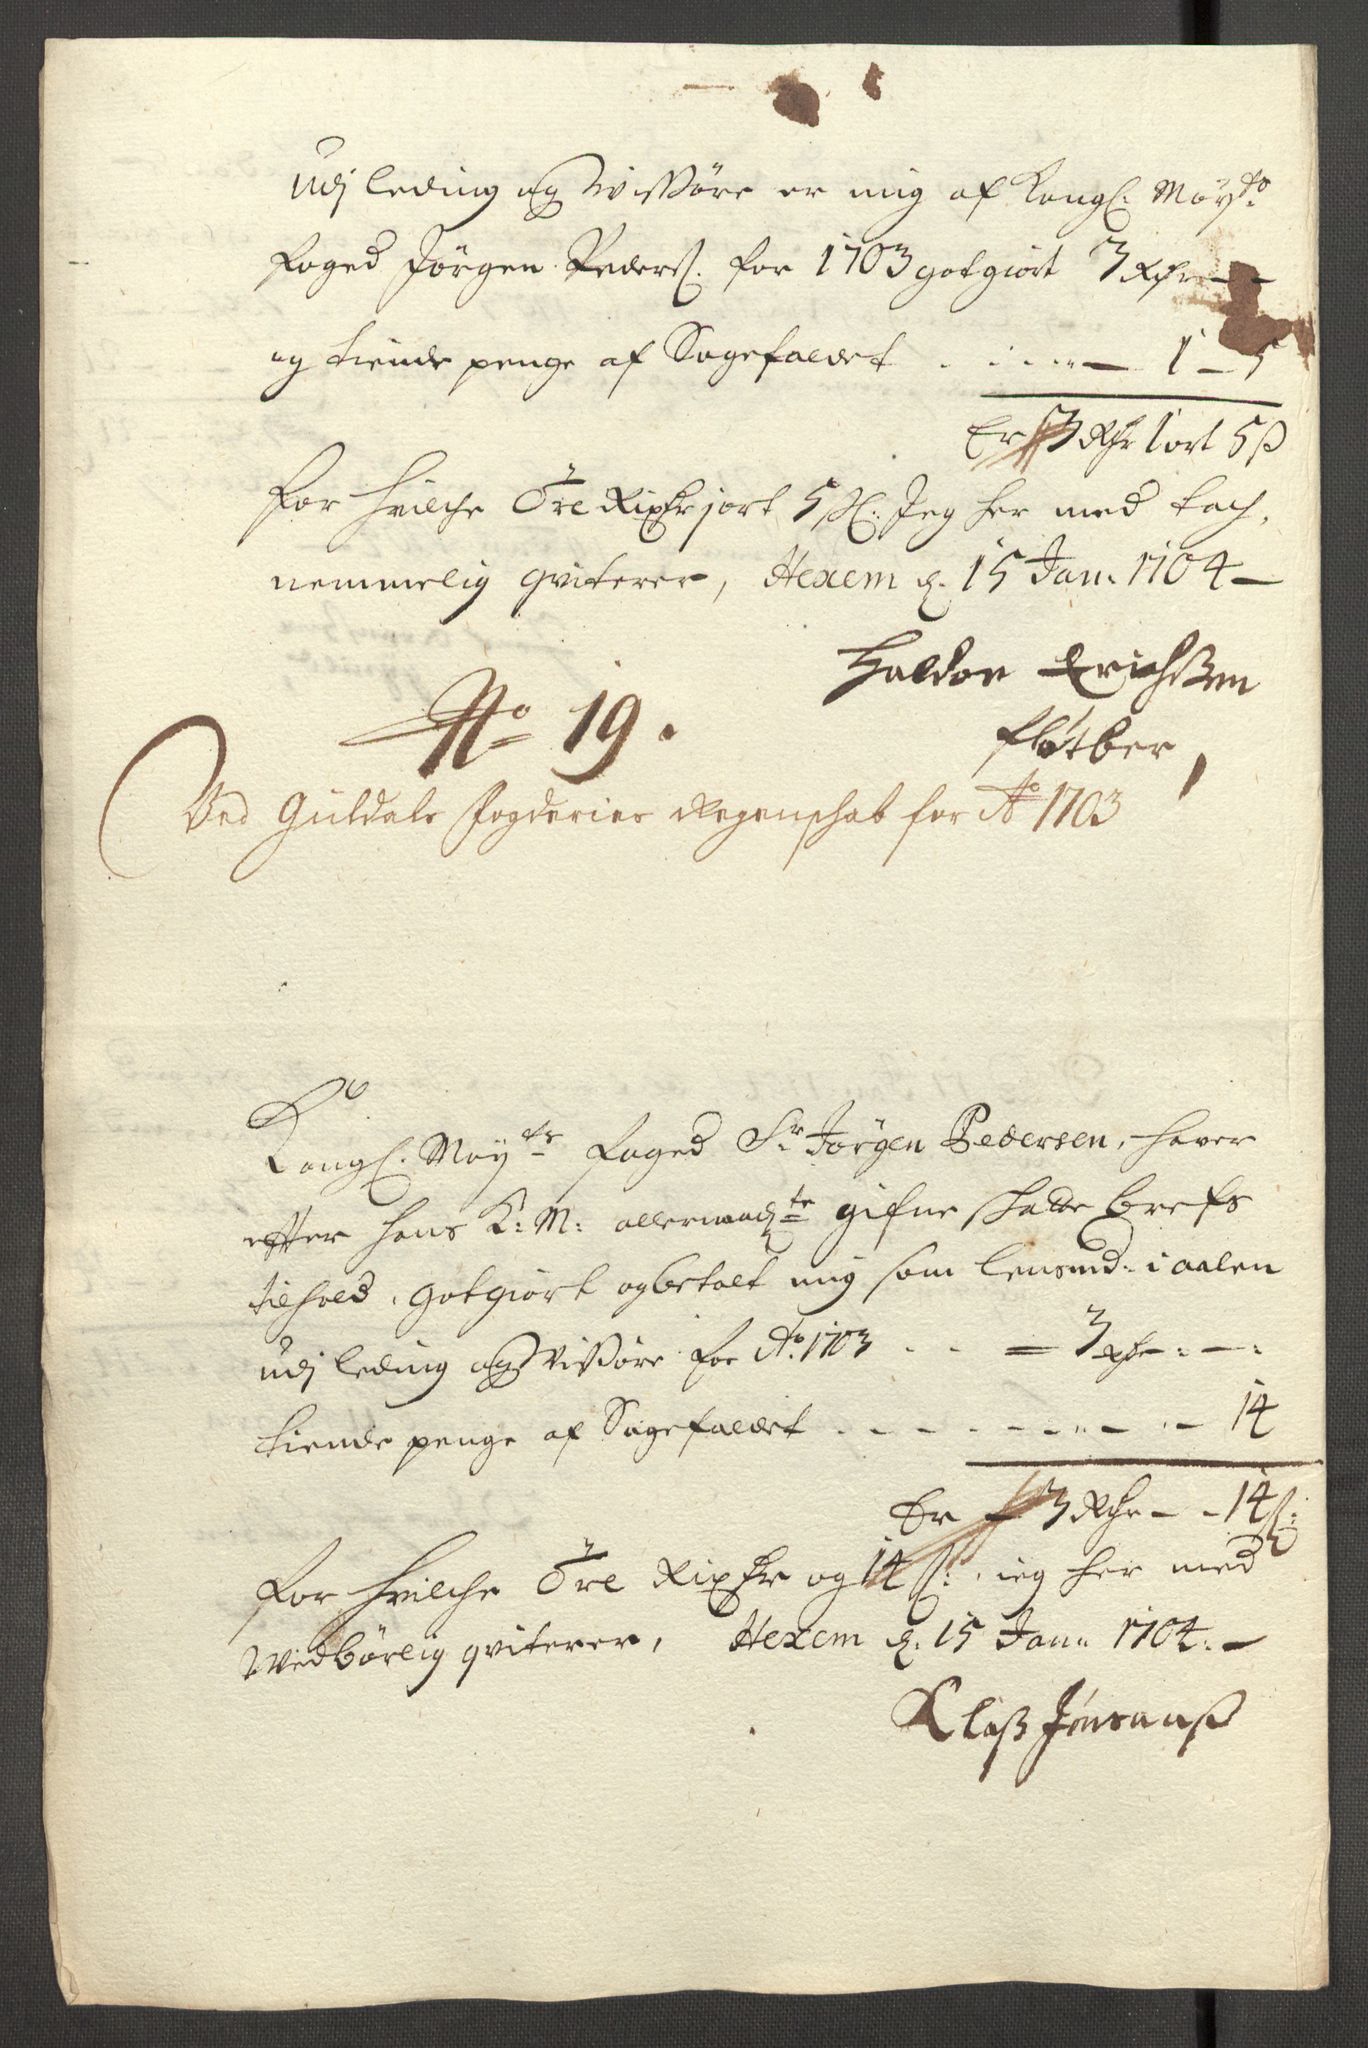 Udj leding og Vissøre er mig af Kongl: Maÿts
foged Jörgen Peders: for 1703 gotgiort 3 Rdr - -
og tiende penge af Sagefaldet . . . . . - 1 - 5
Er 3 Rdr 1 ort 5 ß
for hvilche Tre Rixdr j ort 5 ß: Jeg her med tach,
nemmelig qviterer, Hexem d. 15 Jan: 1704 -
Haldor Erichßen
fløtber
No 19.
Ved Guldals fogderies Regenschab for Ao 1703
Kongl: Maÿts foged Sr Jörgen Pedersen, haver
effter hans K: M: allernaadste gifne schatte brefs
tilhold, gotgiort og betalt mig som lensmd: i aalen
udj leding og Vissøre for Ao: 1703 . . = 3 Rdr - : - :
tiende penge af Sagefaldet . - . - . - . - - 14
Er - 3 Rdr - - 14 ß:
for hvilche Tre Rixdr og 14 ß: ieg her med
Wedbørlig qviterer, Hexem d. 15 Jan: 1704: -
Klaß Jönsanß